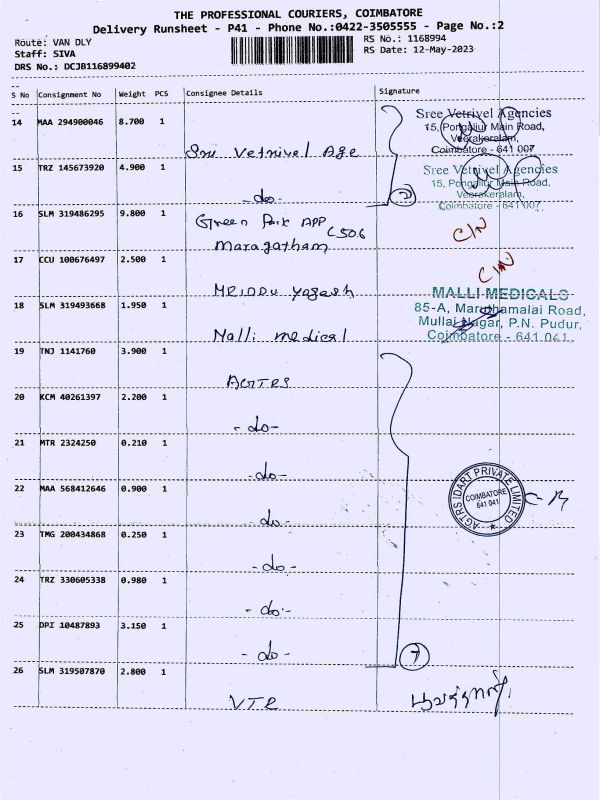 THE PROFESSIONAL COURIERS, COIMBATORE
Delivery Runsheet - P41 - Phone No.:0422-3505555 - Page No.:2
Route: VAN DLY
RS No.: 1168994
Staff: SIVA
RS Date: 12-May-2023
DRS No.: DCJB116899402
S No Consignment No Weight PCS Consignee Details Signature
14 MAA 294900046 8.700 1 Sree Vetrivel Age
Sree Vetrivel Agencies
15, Pongaliur Main Road,
Veerakeralam,
Coimbatore - 641 007
15 TRZ 145673920 4.900 1 -do-
Sree Vetrivel Agencies
15, Pongaliur Main Road,
Veerakeralam,
Coimbatore - 641 007
2
16 SLM 319486295 9.800 1 Green Park APP C506
Maragatham
C/N
17 CCU 100676497 2.500 1 MRIDDU Yogesh
C/N
18 SLM 319493668 1.950 1 Malli medical
MALLI MEDICALS
85-A, Maruthamalai Road,
Mullai Nagar, P.N. Pudur,
Coimbatore - 641 041.
19 TNJ 1141760 3.900 1 AGTRS
20 KCM 40261397 2.200 1 -do-
21 MTR 2324250 0.210 1 -do-
22 MAA 568412646 0.900 1 -do-
AGTRS IDART PRIVATE LIMITED
COIMBATORE
641 041
23 TMG 200434868 0.250 1 -do-
24 TRZ 330605338 0.980 1 -do-
25 DPI 10487893 3.150 1 -do-
7
26 SLM 319507870 2.800 1 VTR